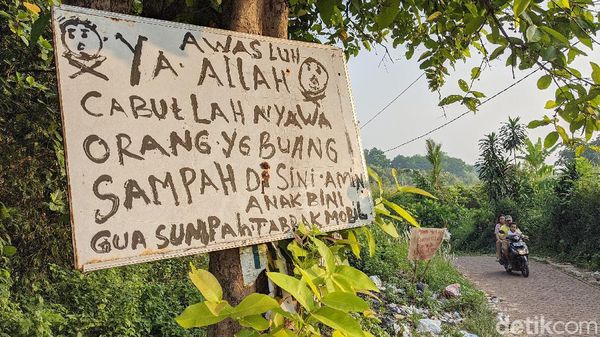 AWAS LUH
YA ALLAH
CABUTLAH NYAWA
ORANG YG BUANG
SAMPAH DI SINI AMIN
ANAK BINI
GUA SUMPAH TABRAK MOBIL
detikcom